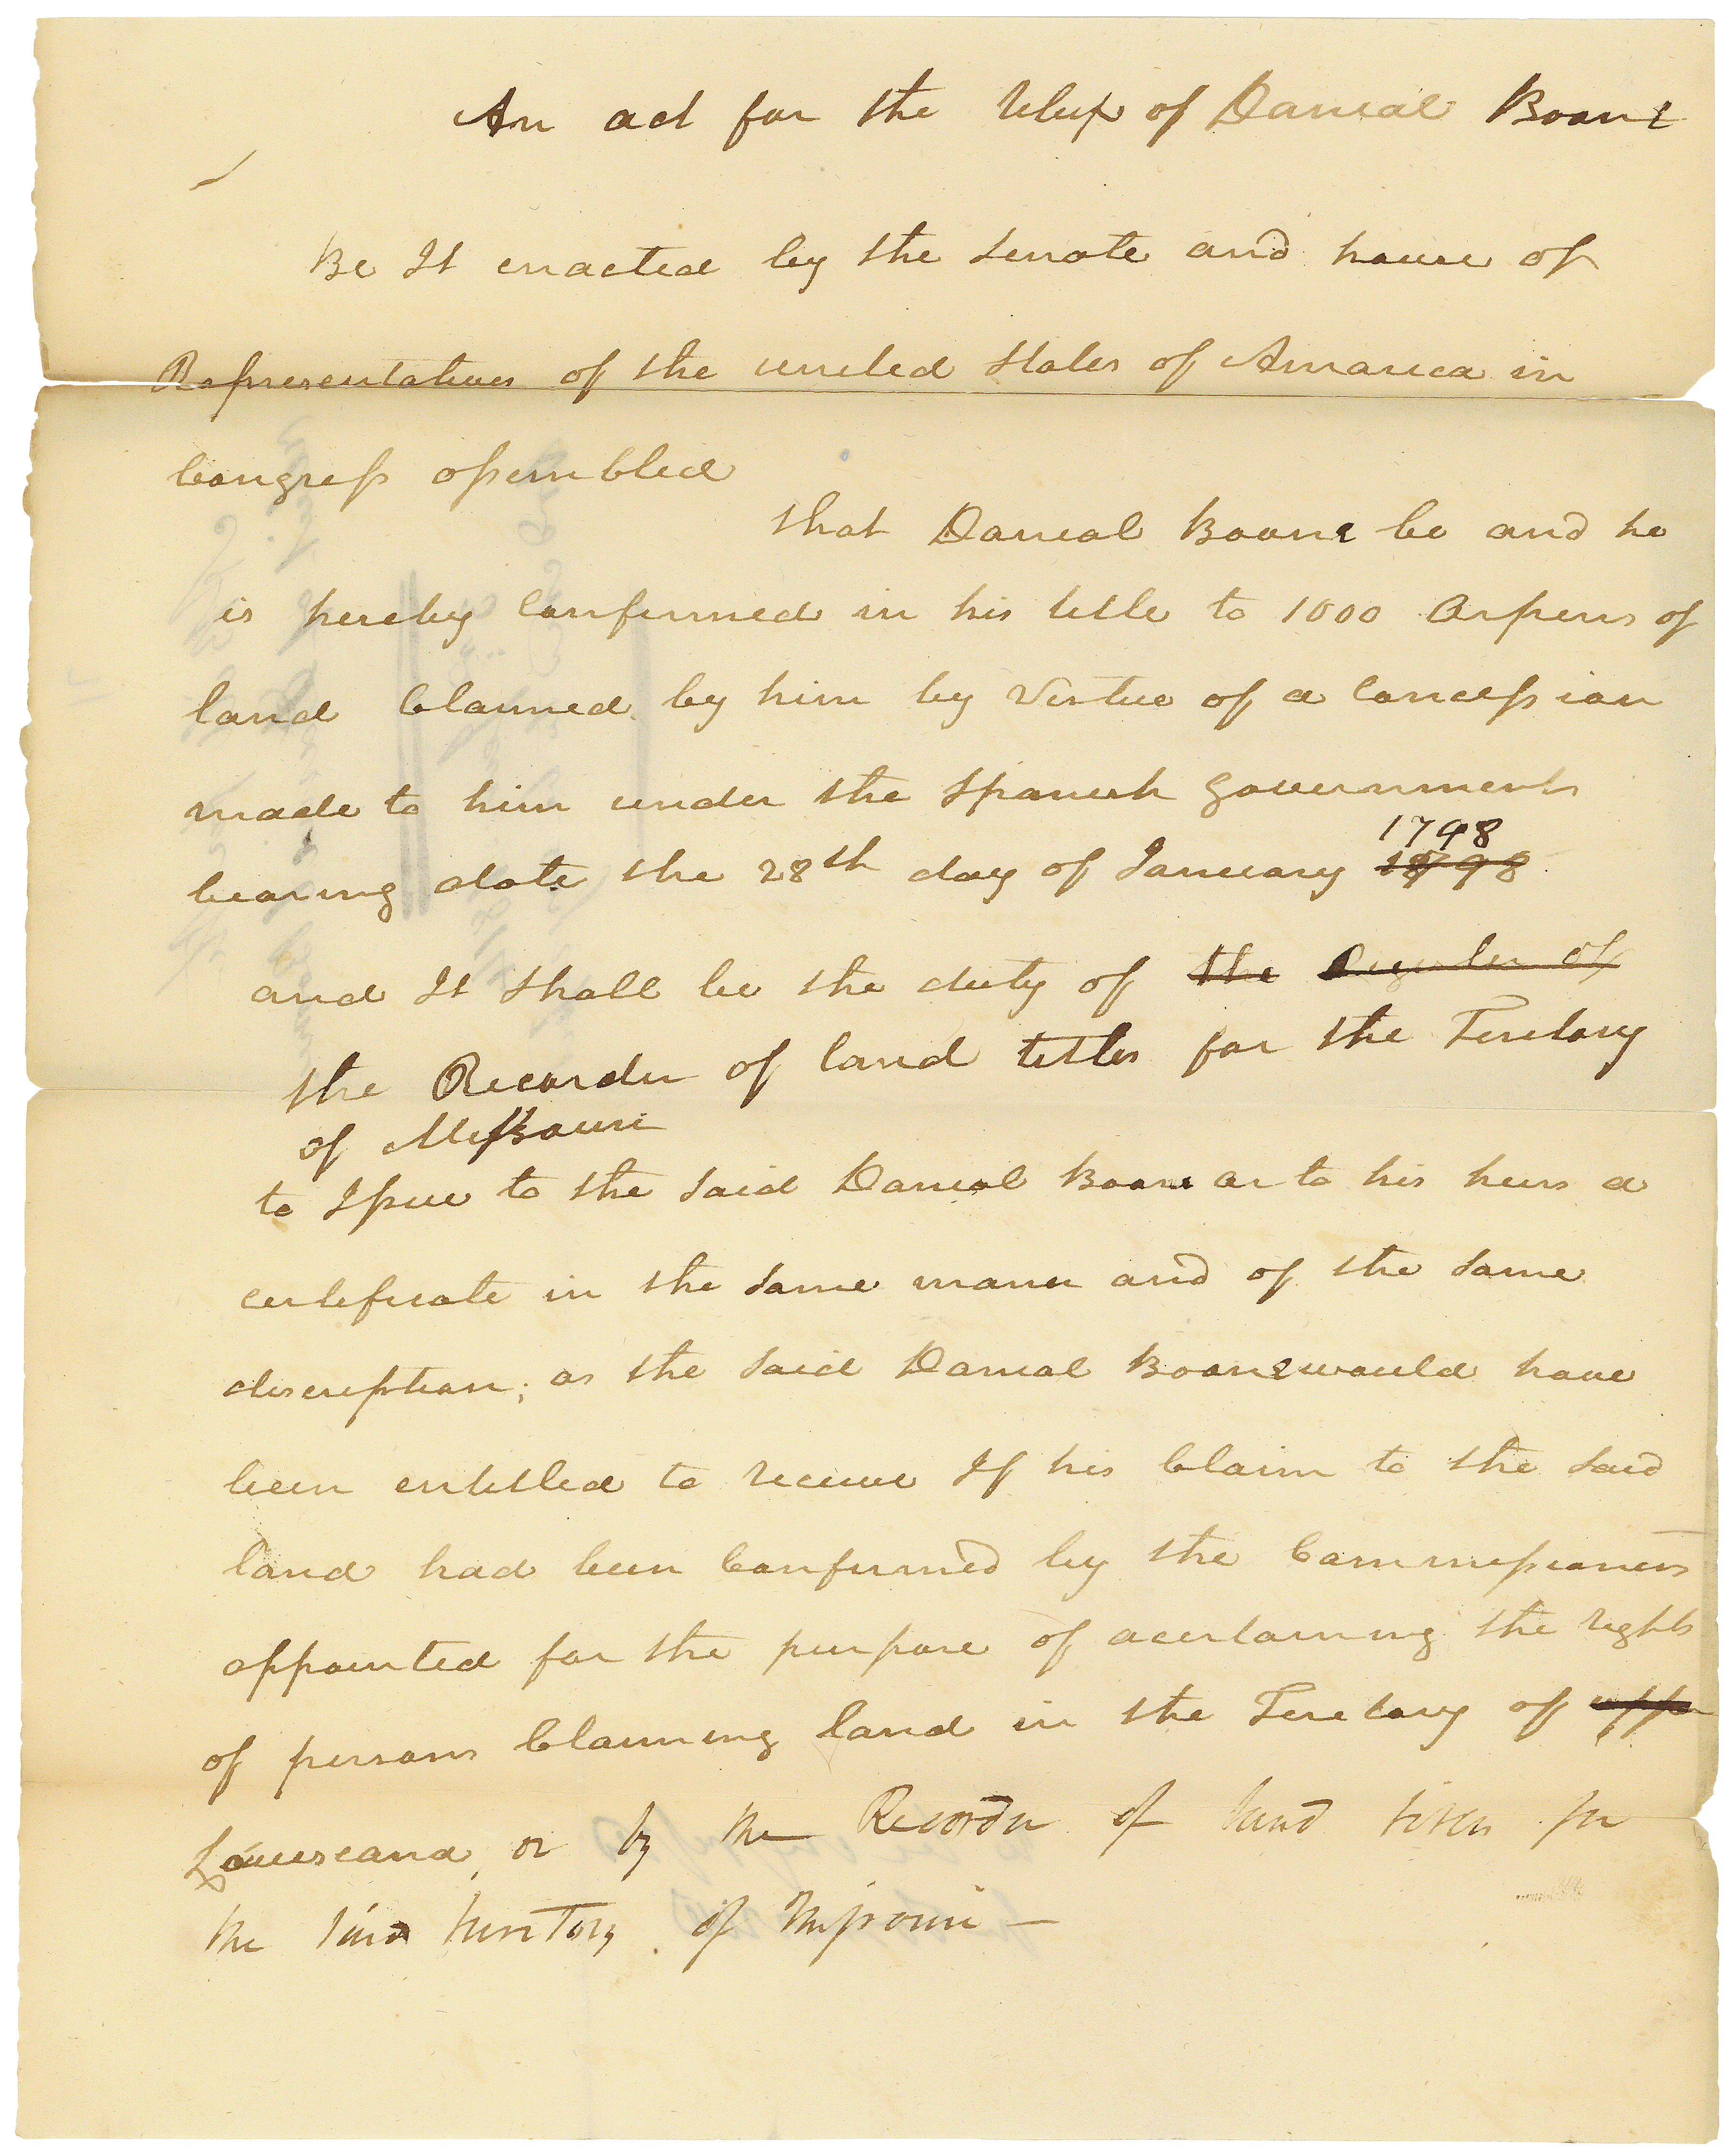 An act for the relief of Danial Boone
Be It enacted by the Senate and house of
Representatives of the united States of Amarica in
Congress assembled
that Danial Boone be and he
is hereby Confirmed in his title to 1000 Arpens of
land Claimed by him by Virtue of a Concession
made to him under the Spanish Government
1798
bearing date the 28th day of January 1898
and It Shall be the duty of the Register of
the Recorder of land titles for the Teretory
of Missouri
to Issue to the Said Danial Boone or to his heirs a
certificate in the Same maner and of the Same
discription; as the Said Danial Boone would have
been entitled to receive If his Claim to the Said
land had been Confirmed by the Commissioners
appointed for the purpose of acertaining the rights
of persons Claiming land in the Teretory of upper
Louiseana, or by the Recorder of land titles for
the said territory of Missouri —